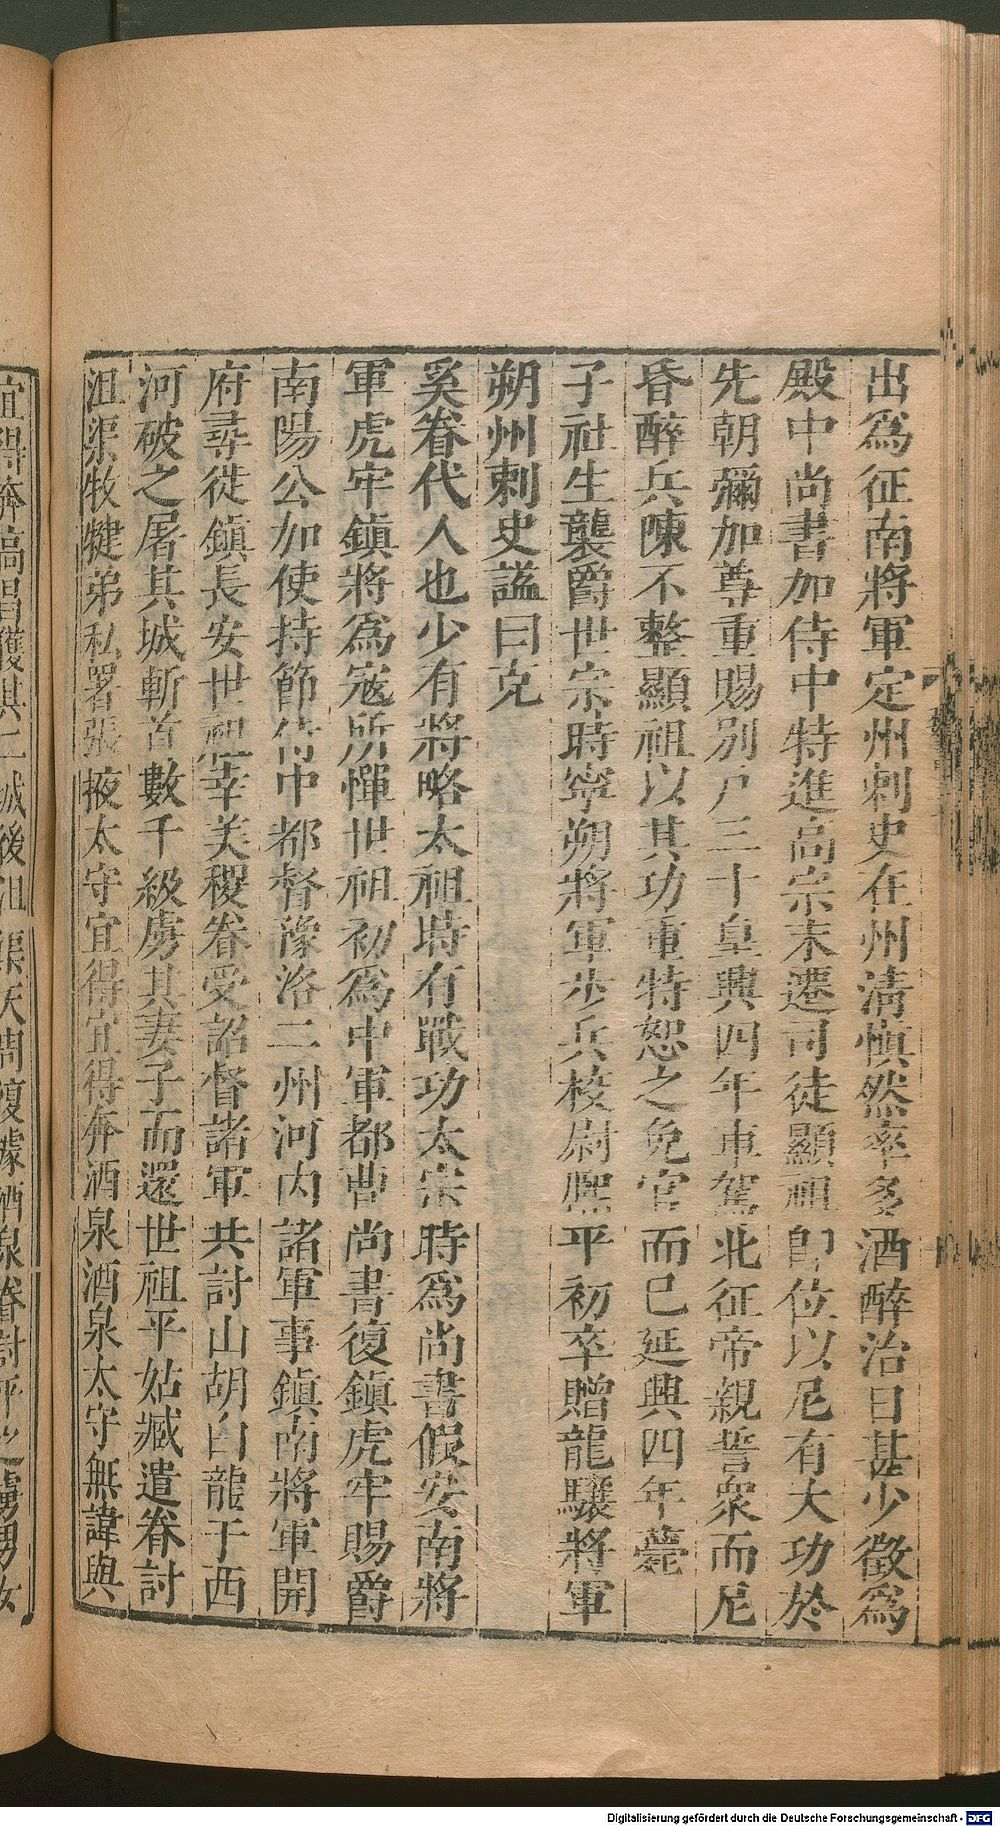 出爲征南將軍定州刺史在州清愼然率多酒醉治日甚少徵爲
殿中尚書加侍中特進高宗末遷司徒顯祖卽位以尼有大功於
先朝彌加尊重賜別戶三十皇興四年車駕北征帝親誓衆而尼
昏醉兵陳不整顯祖以其功重特恕之免官而已延興四年薨
子社生襲爵世宗時寧朔將軍步兵校尉熙平初卒贈龍驤將軍
朔州刺史謚曰克
奚眷代人也少有將略太祖時有戰功太宗時爲尚書假安南將
軍虎牢鎭將爲寇所憚世祖初爲中軍都曹尚書復鎭虎牢賜爵
南陽公加使持節侍中都督豫洛二州河內諸軍事鎭南將軍開
府尋徙鎭長安世祖幸美稷眷受詔督諸軍共討山胡白龍于西
河破之屠其城斬首數千級虜其妻子而還世祖平姑臧遣眷討
沮渠牧犍弟私署張掖太守宜得宜得奔酒泉酒泉太守無諱與
宜得奔高昌獲其二城後沮渠天周復據酒泉眷討平之虜男女
Digitalisierung gefördert durch die Deutsche Forschungsgemeinschaft - DFG